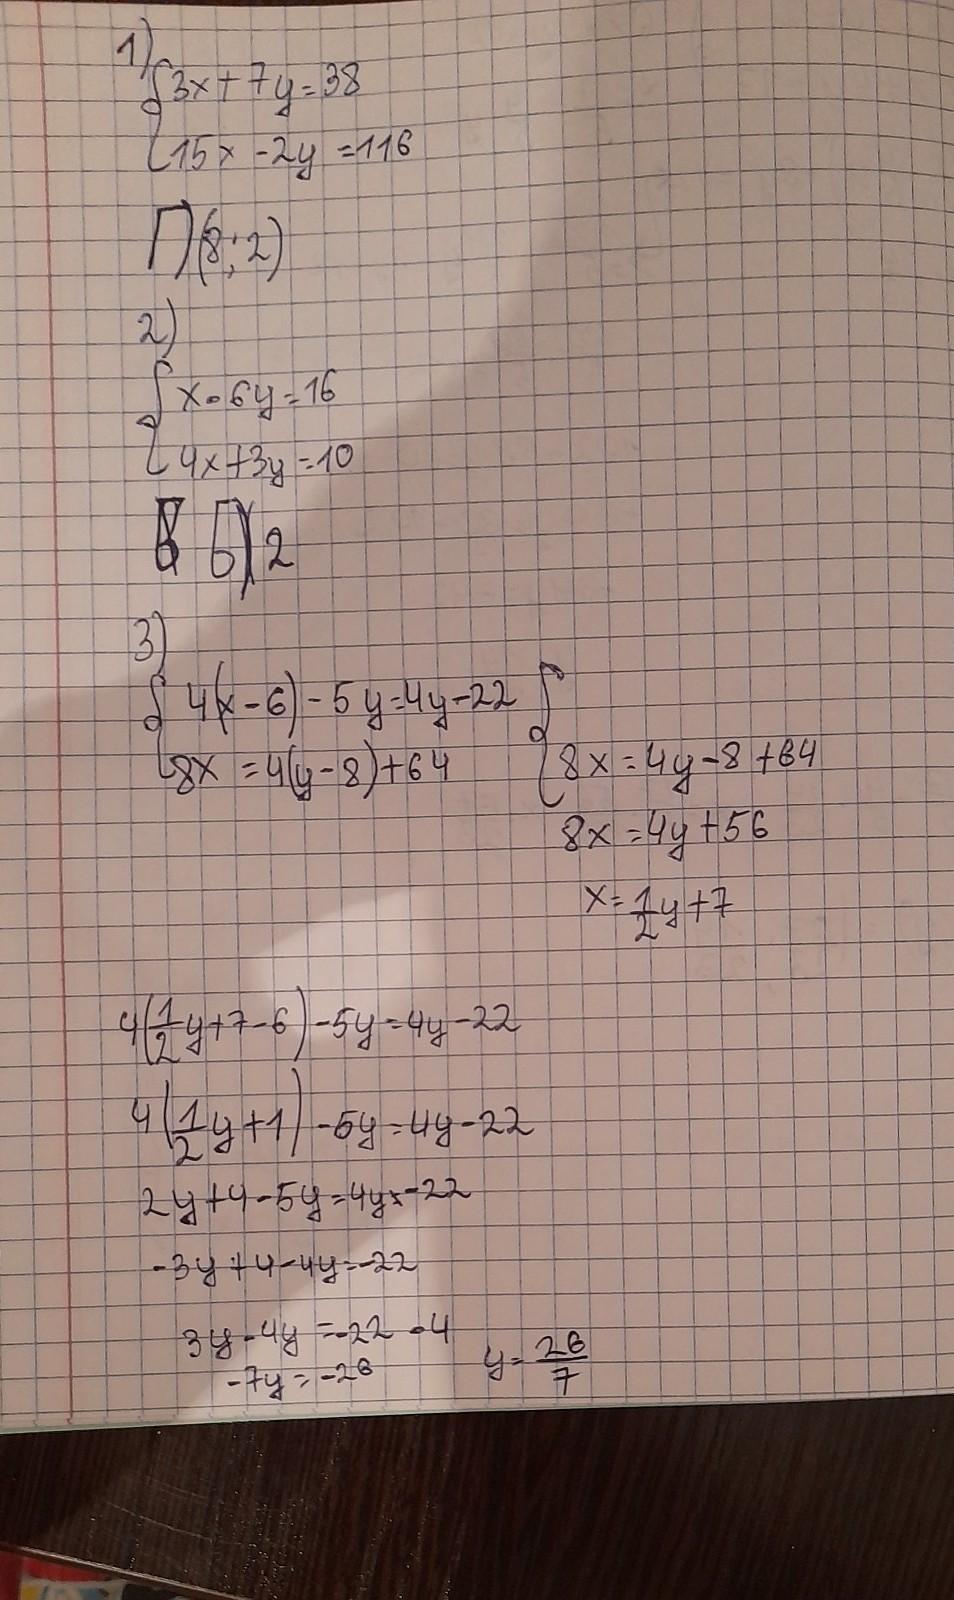 1)
{3x + 7y = 38
15x - 2y = 116
Г) (8; 2)
2)
{x - 6y = 16
4x + 3y = 10
Б) 2
3)
{4(x - 6) - 5y = 4y - 22 {
8x = 4(y - 8) + 64 8x = 4y - 8 + 64
8x = 4y + 56
x = 1/2 y + 7
4(1/2 y + 7 - 6) - 5y = 4y - 22
4(1/2 y + 1) - 5y = 4y - 22
2y + 4 - 5y = 4y - 22
-3y + 4 - 4y = -22
3y - 4y = -22 - 4
-7y = -26 y = 26/7